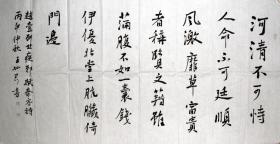 河清不可恃
人命不可延順
風激靡草富貴
者稱賢文籍雖
滿腹不如一囊錢
伊優北堂上肮臟倚
門邊
趙壹刺世疾邪賦秦客詩
丙午仲秋王